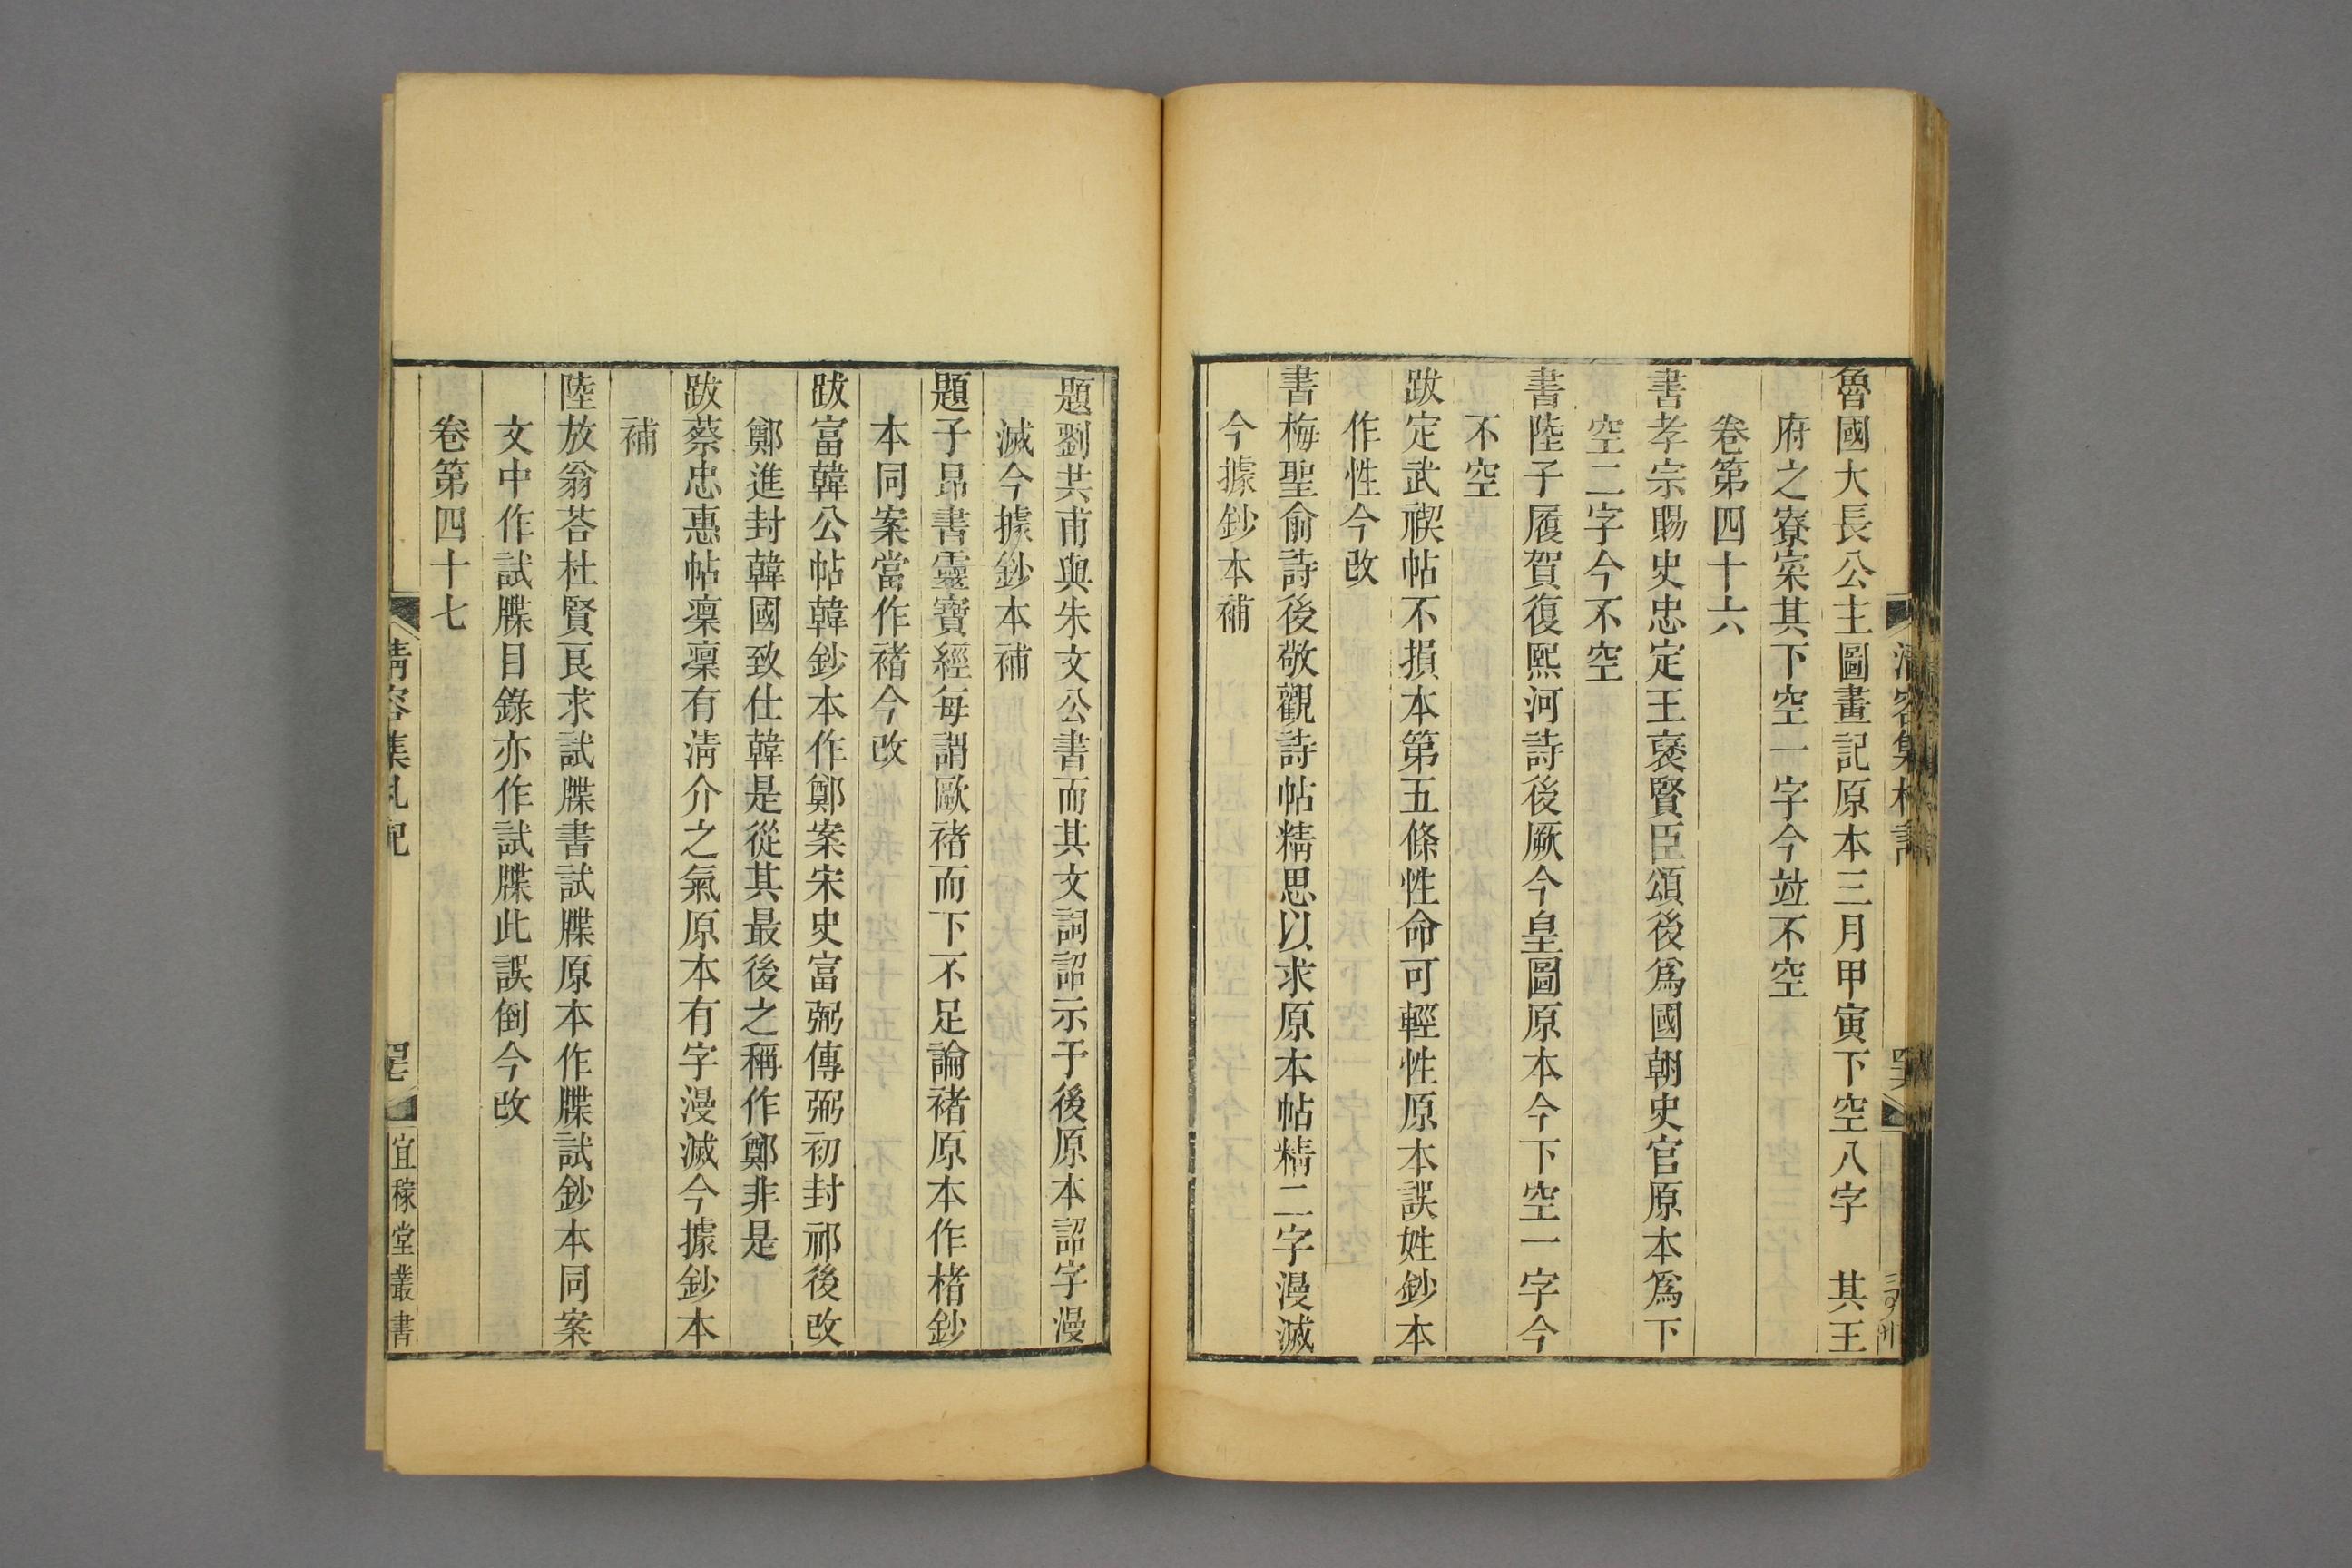 魯國大長公主圖畫記原本三月甲寅下空八字　其王
府之寮寀其下空一字今竝不空
卷第四十六
書孝宗賜史忠定王襃賢臣頌後爲國朝史官原本爲下
空二字今不空
書陸子履賀復熙河詩後厥今皇圖原本今下空一字今
不空
跋定武禊帖不損本第五條性命可輕性原本誤姓鈔本
作性今改
書梅聖俞詩後敬觀詩帖精思以求原本帖精二字漫滅
今據鈔本補
題劉共甫與朱文公書而其文詞詔示于後原本詔字漫
滅今據鈔本補
題子昂書靈寶經每謂歐褚而下不足論褚原本作楮鈔
本同案當作褚今改
跋富韓公帖韓鈔本作鄭案宋史富弼傳弼初封祁後改
鄭進封韓國致仕韓是從其最後之稱作鄭非是
跋蔡忠惠帖凜凜有淸介之氣原本有字漫滅今據鈔本
補
陸放翁荅杜賢良求試牒書試牒原本作牒試鈔本同案
文中作試牒目錄亦作試牒此誤倒今改
卷第四十七
宜稼堂叢書